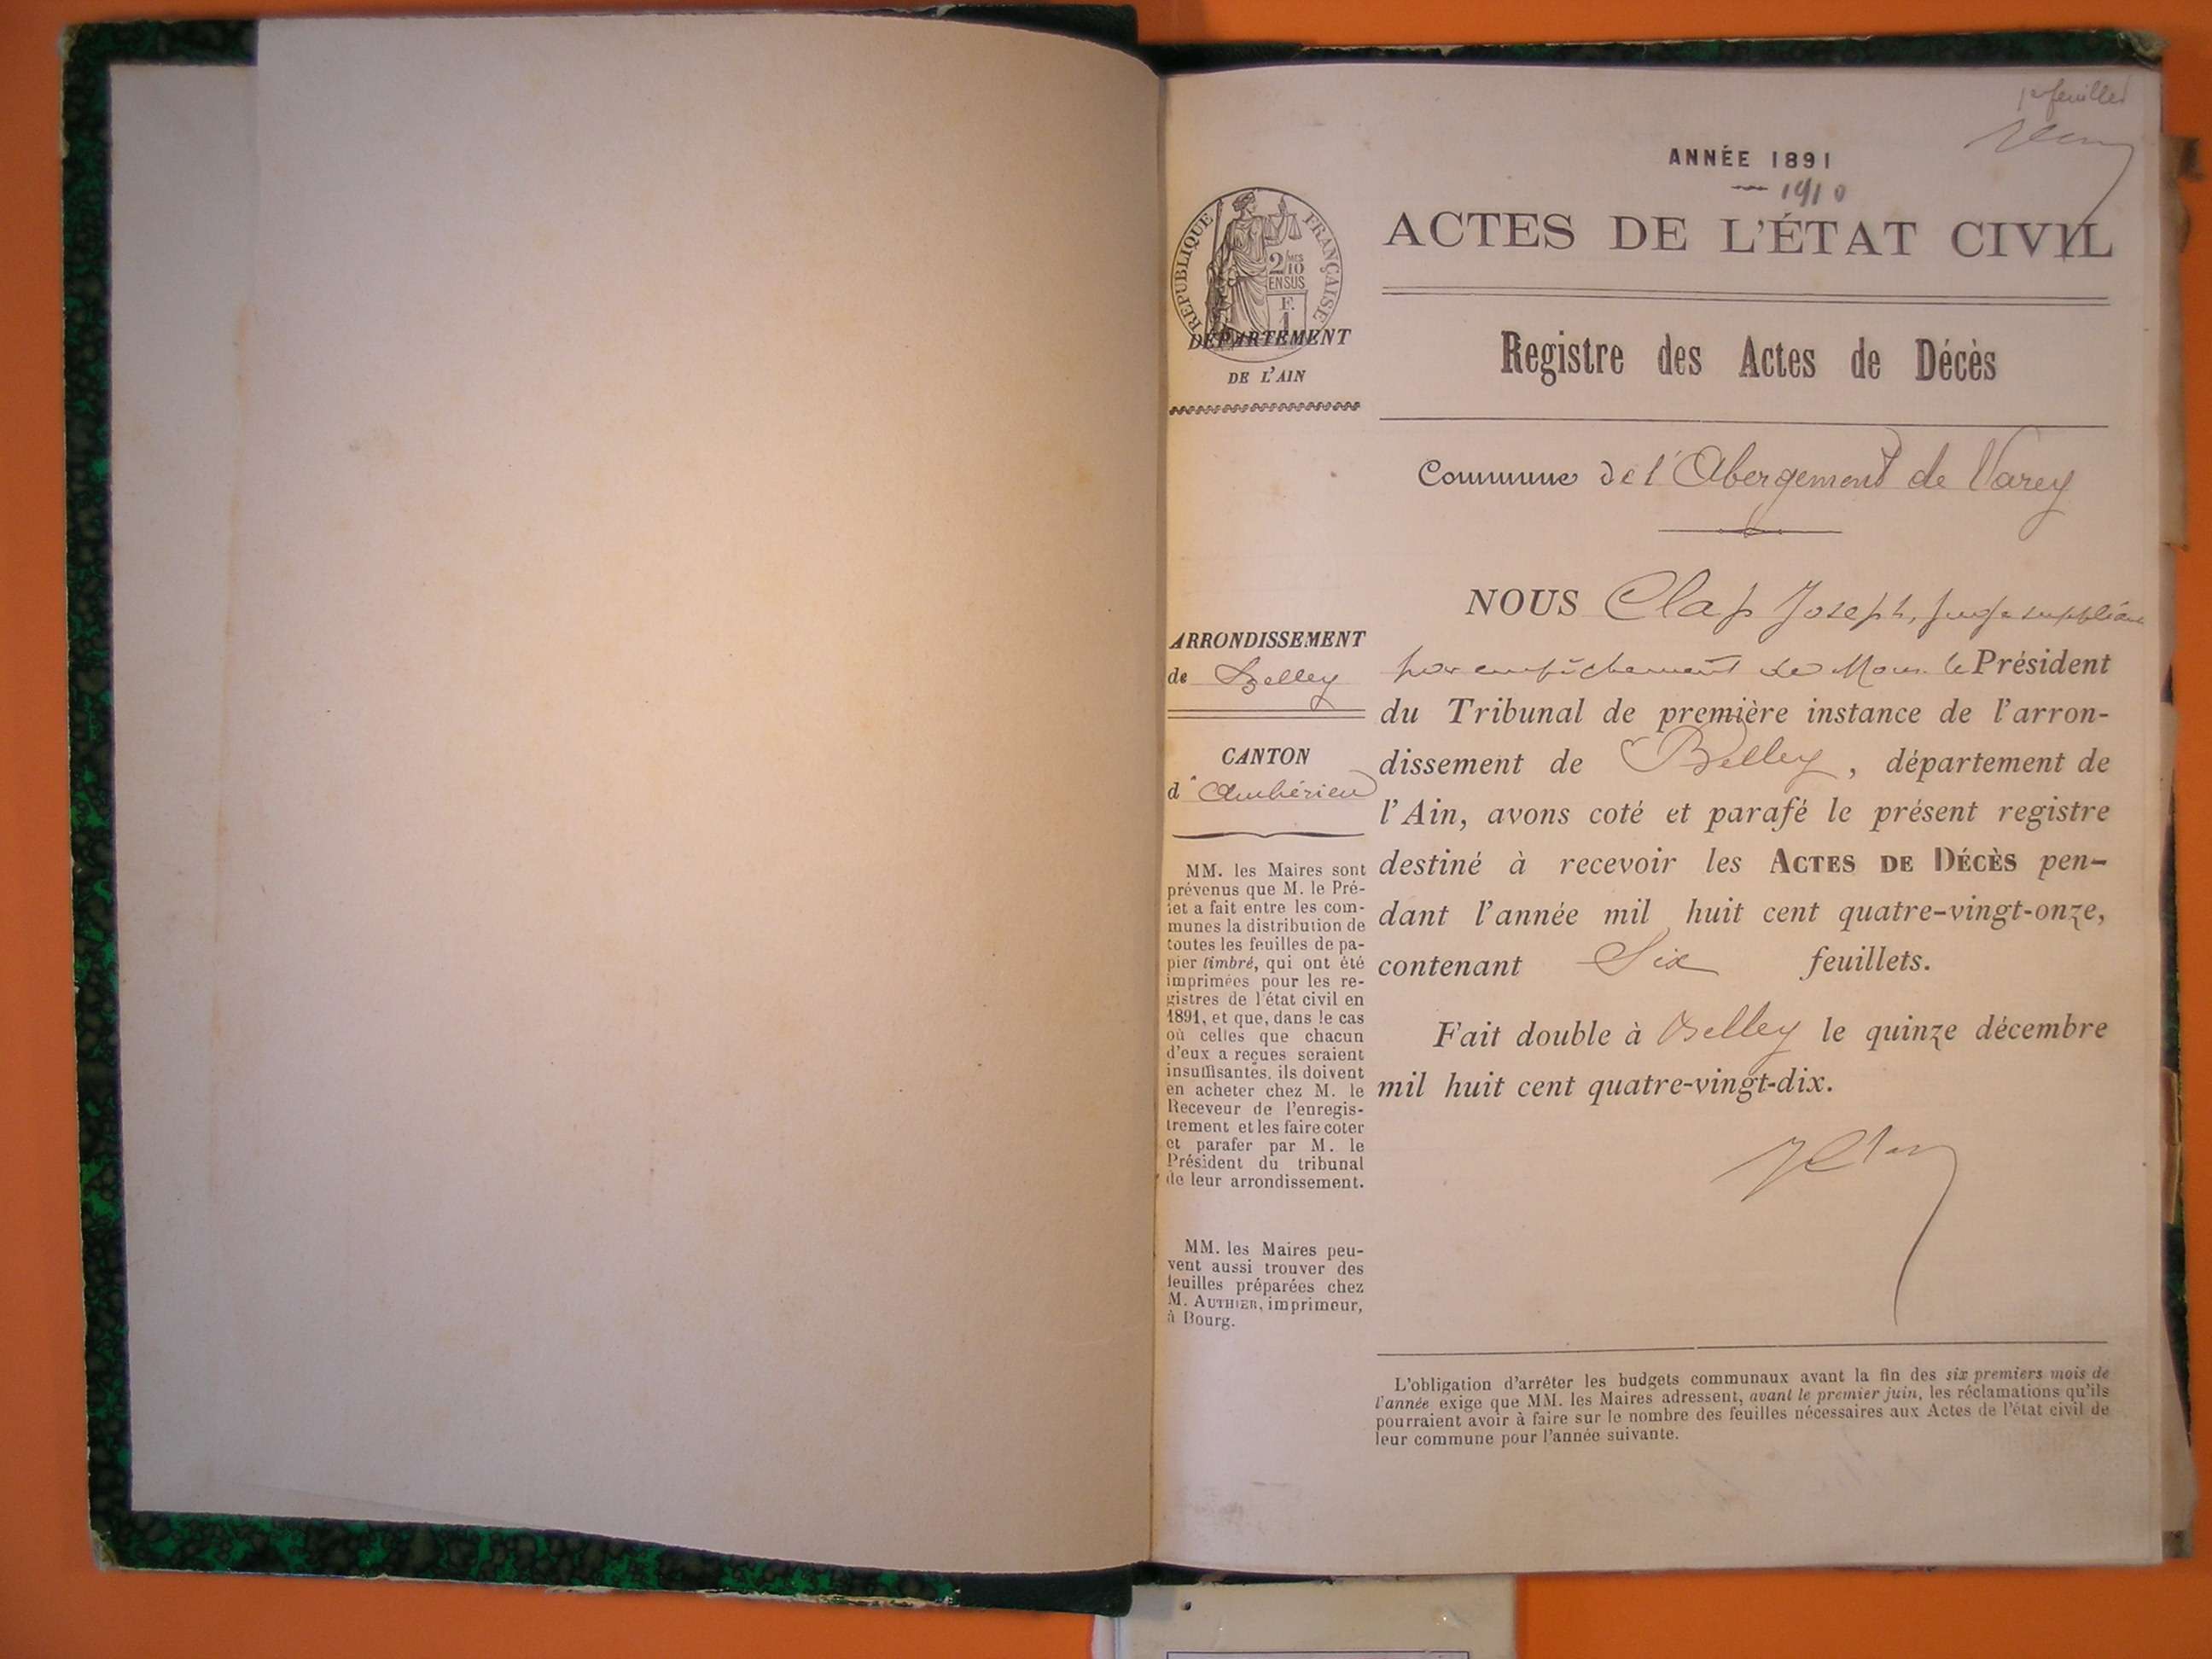 1er feuillet
ANNÉE 1891
— 1910
ACTES DE L'ÉTAT CIVIL
RÉPUBLIQUE FRANÇAISE
2/10 MES
EN SUS
F.
1
DÉPARTEMENT
DE L'AIN
Registre des Actes de Décès
Commune de l'Abergement de Varey
ARRONDISSEMENT
de Belley
CANTON
d'Ambérieu
MM. les Maires sont
prévenus que M. le Pré-
fet a fait entre les com-
munes la distribution de
toutes les feuilles de pa-
pier timbré, qui ont été
imprimées pour les re-
gistres de l'état civil en
1891, et que, dans le cas
où celles que chacun
d'eux a reçues seraient
insuffisantes, ils doivent
en acheter chez M. le
Receveur de l'enregis-
trement et les faire coter
et parafer par M. le
Président du tribunal
de leur arrondissement.
MM. les Maires peu-
vent aussi trouver des
feuilles préparées chez
M. AUTHIER, imprimeur,
à Bourg.
NOUS Clap Joseph, juge suppléant
par empêchement de Mons. le Président
du Tribunal de première instance de l'arron-
dissement de Belley, département de
l'Ain, avons coté et parafé le présent registre
destiné à recevoir les ACTES DE DÉCÈS pen-
dant l'année mil huit cent quatre-vingt-onze,
contenant Six feuillets.
Fait double à Belley le quinze décembre
mil huit cent quatre-vingt-dix.
L'obligation d'arrêter les budgets communaux avant la fin des six premiers mois de
l'année exige que MM. les Maires adressent, avant le premier juin, les réclamations qu'ils
pourraient avoir à faire sur le nombre des feuilles nécessaires aux Actes de l'état civil de
leur commune pour l'année suivante.